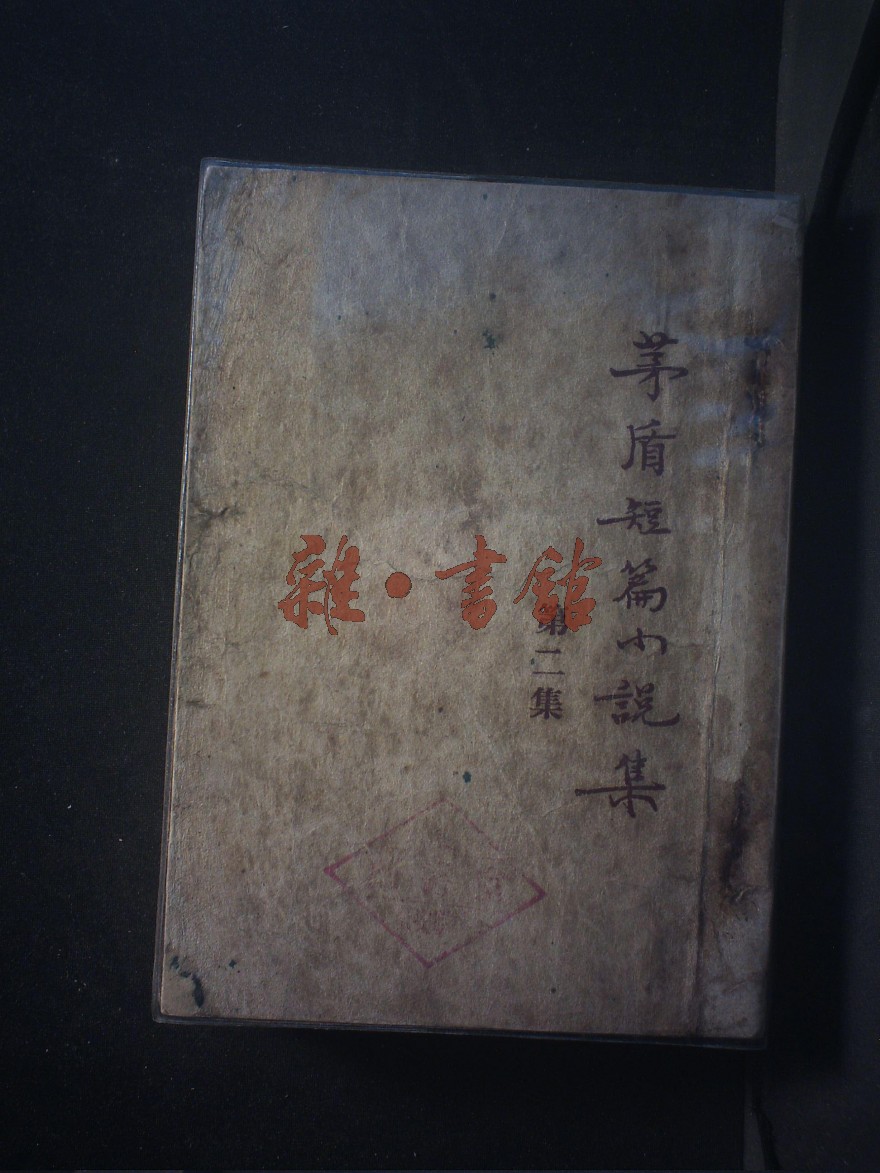 茅盾短篇小説集
第二集
雜·書館